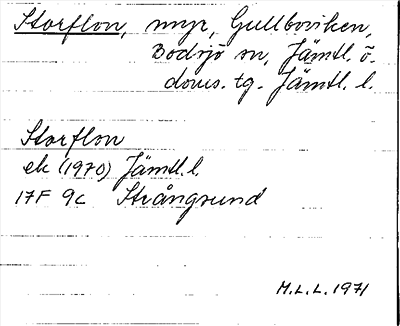 Storflon, myr, Gullboviken,
Bodsjö sn, Jämtl. ö.
doms. tg. Jämtl. l.
Storflon
ek (1970) Jämtl. l.
17F 9c Strångsund
M.L.L. 1971